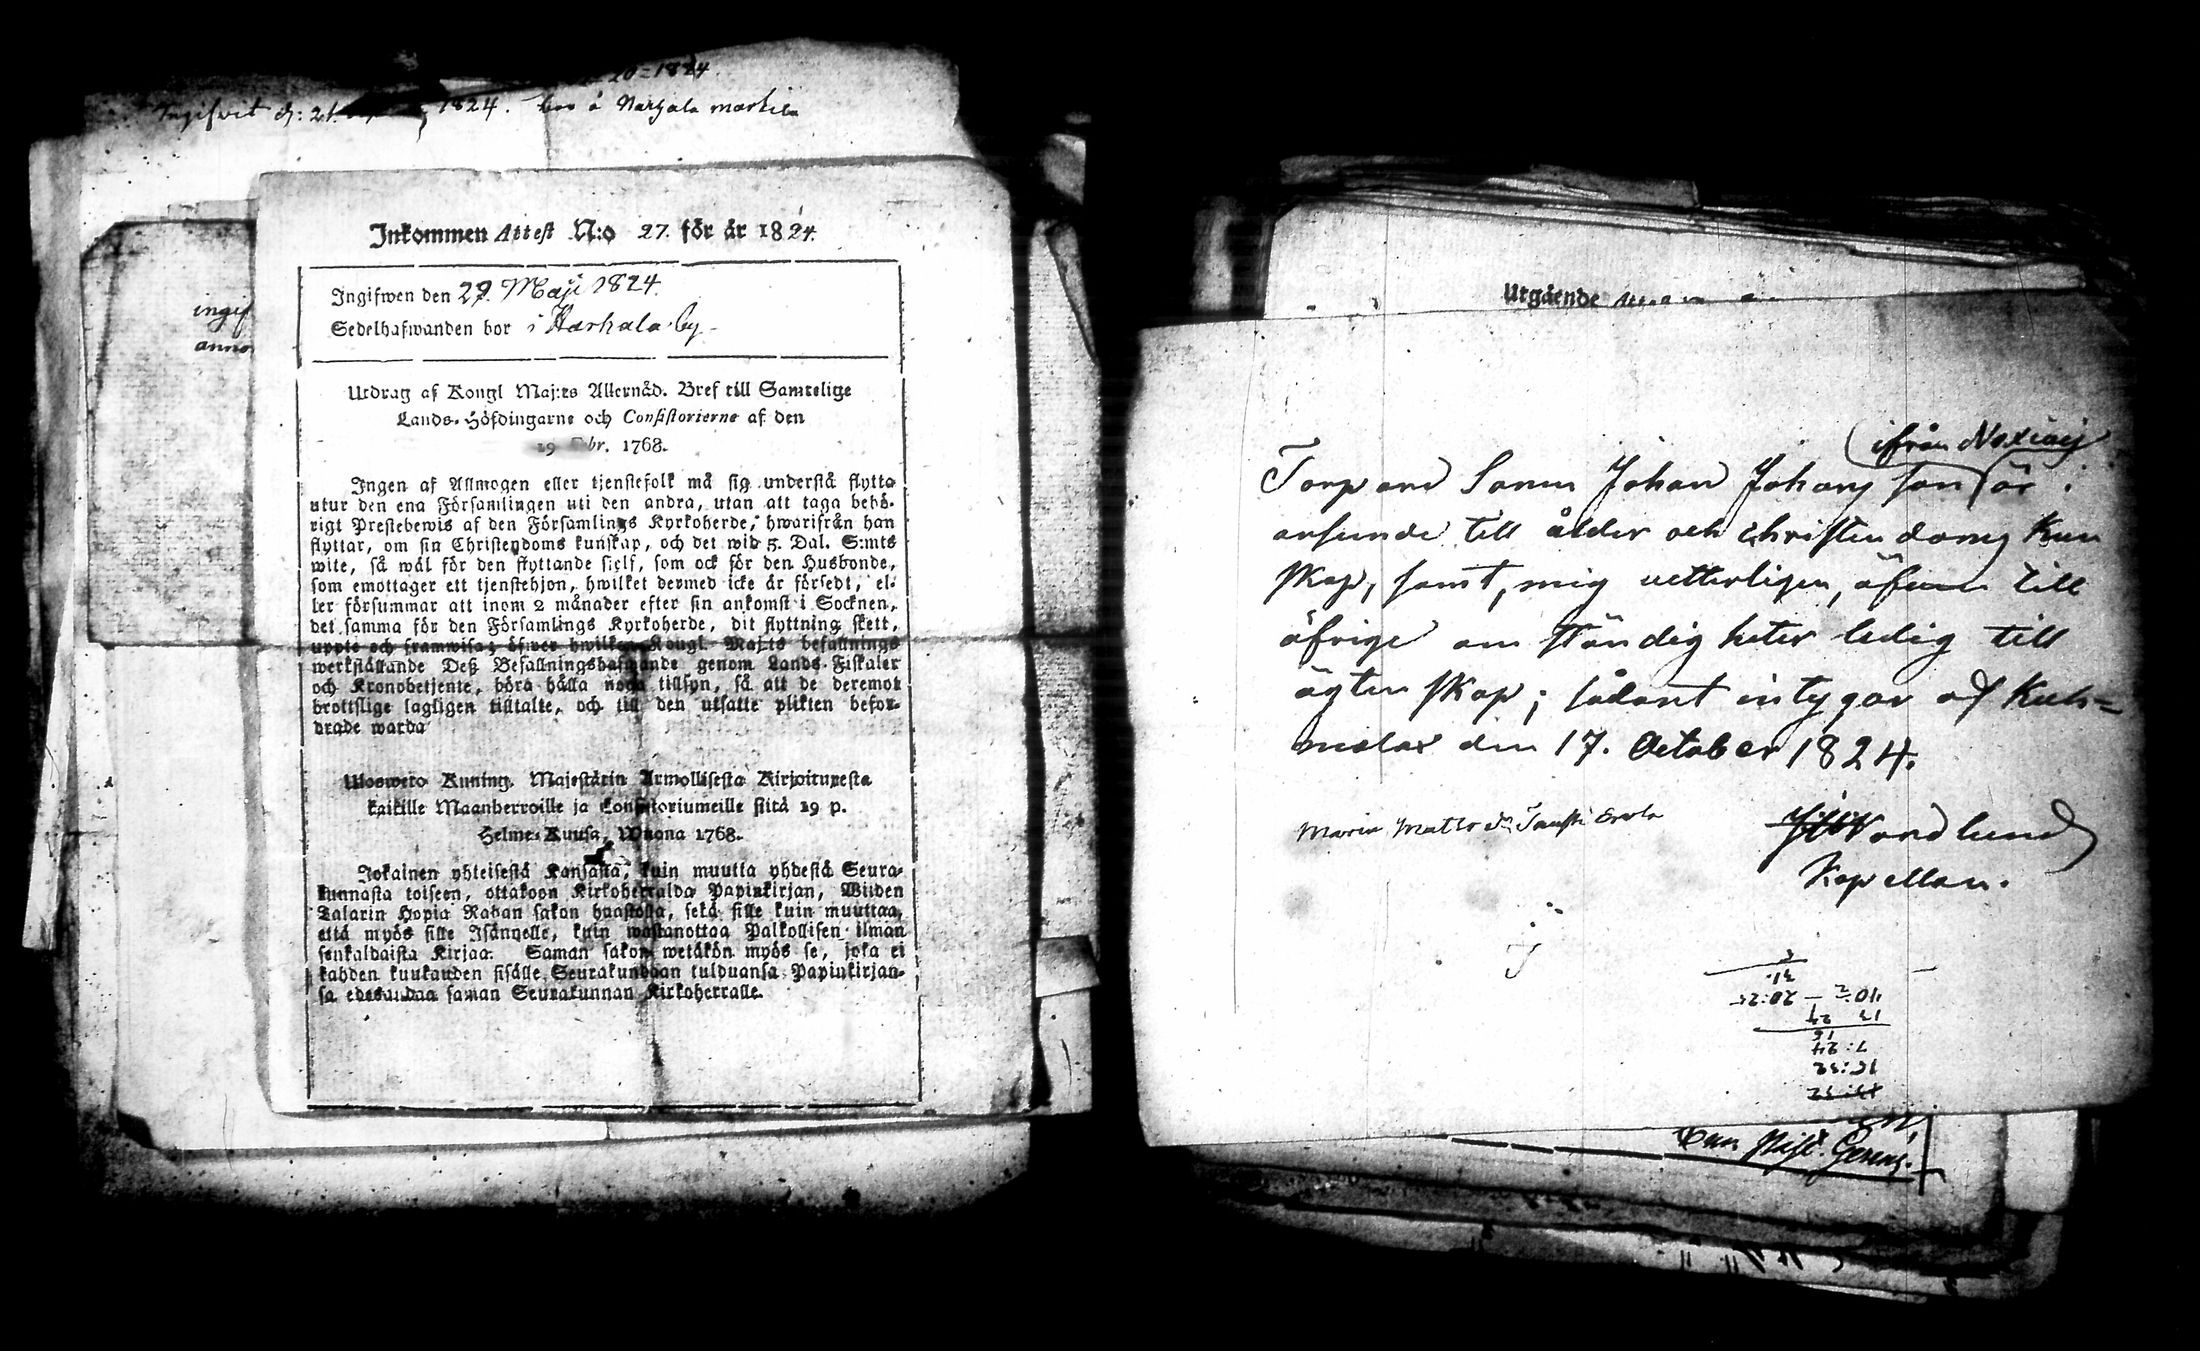 20 = 1824
Ingifvit d: 21. 1824. bor å Narhala
ingif
anno
Inkommen Attest N:o 27. för år 1824.
Ingifwen den 29. Maji 1824.
Sedelhafwanden bor i Harhala by
Utdrag af Kongl Maj:ts Allernåd. Bref till Samtelige
Lands-Höfdingarne och Consistorierne af den
19 Febr. 1768.
Ingen af Allmogen eller tjenstefolk må sig understå flytta
utur den ena Församlingen uti den andra, utan att taga behö-
rigt Prestebewis af den Församlings Kyrkoherde, hwarifrån han
flyttar, om sin Christendoms kunskap, och det wid 5. Dal. S:mts
wite, så wäl för den flyttande sjelf, som ock för den Husbonde,
som emottager ett tjenstehjon, hwilket dermed icke är försedt, el-
ler försummar att inom 2 månader efter sin ankomst i Socknen,
det samma för den Församlings Kyrkoherde, dit flyttning skett,
uppte och framwisa; öfwer hwilken Kongl. Maj:ts befallnings
werkställande Deß Befallningshafwande genom Lands-Fiskaler
och Kronobetjente, böra hålla noga tillsyn, så att de deremot
brottslige lagligen tilltalte, och till den utsatte plikten befor-
drade warda
Ulosweto Kuning. Majestätin Armollisesta Kirjoituxesta
kaikille Maanherroille ja Consistoriumeille siitä 19 p.
Helme-Kuusa, Wuona 1768.
Jokainen yhteisestä Kansasta, kuin muutta yhdestä Seura-
kunnasta toiseen, ottakoon Kirkoherralda Papinkirjan, Wiiden
Talarin Hopia Rahan sakon haastolla, sekä sille kuin muuttaa,
että myös sille Isännelle, kuin wastanottaa Palkollisen ilman
senkaldaista Kirjaa. Saman sakon wetäkön myös se, joka ei
kahden kuukauden sisälle Seurakundaan tulduansa Papinkirjan-
sa edesandaa saman Seurakunnan Kirkoherralle.
Utgående
ifrån
Torpare Sonen Johan Johans son för i
anseende till ålder och christendoms Kun
skap, samt, mig vetterligen, äfven till
öfrige om ständig heter ledig till
ägten skap; sådant intygar af Kuh=
malax den 17. October 1824.
Nordlund
Kapellan.
Maria Matts dr
31.
20:21
7:24
16:32